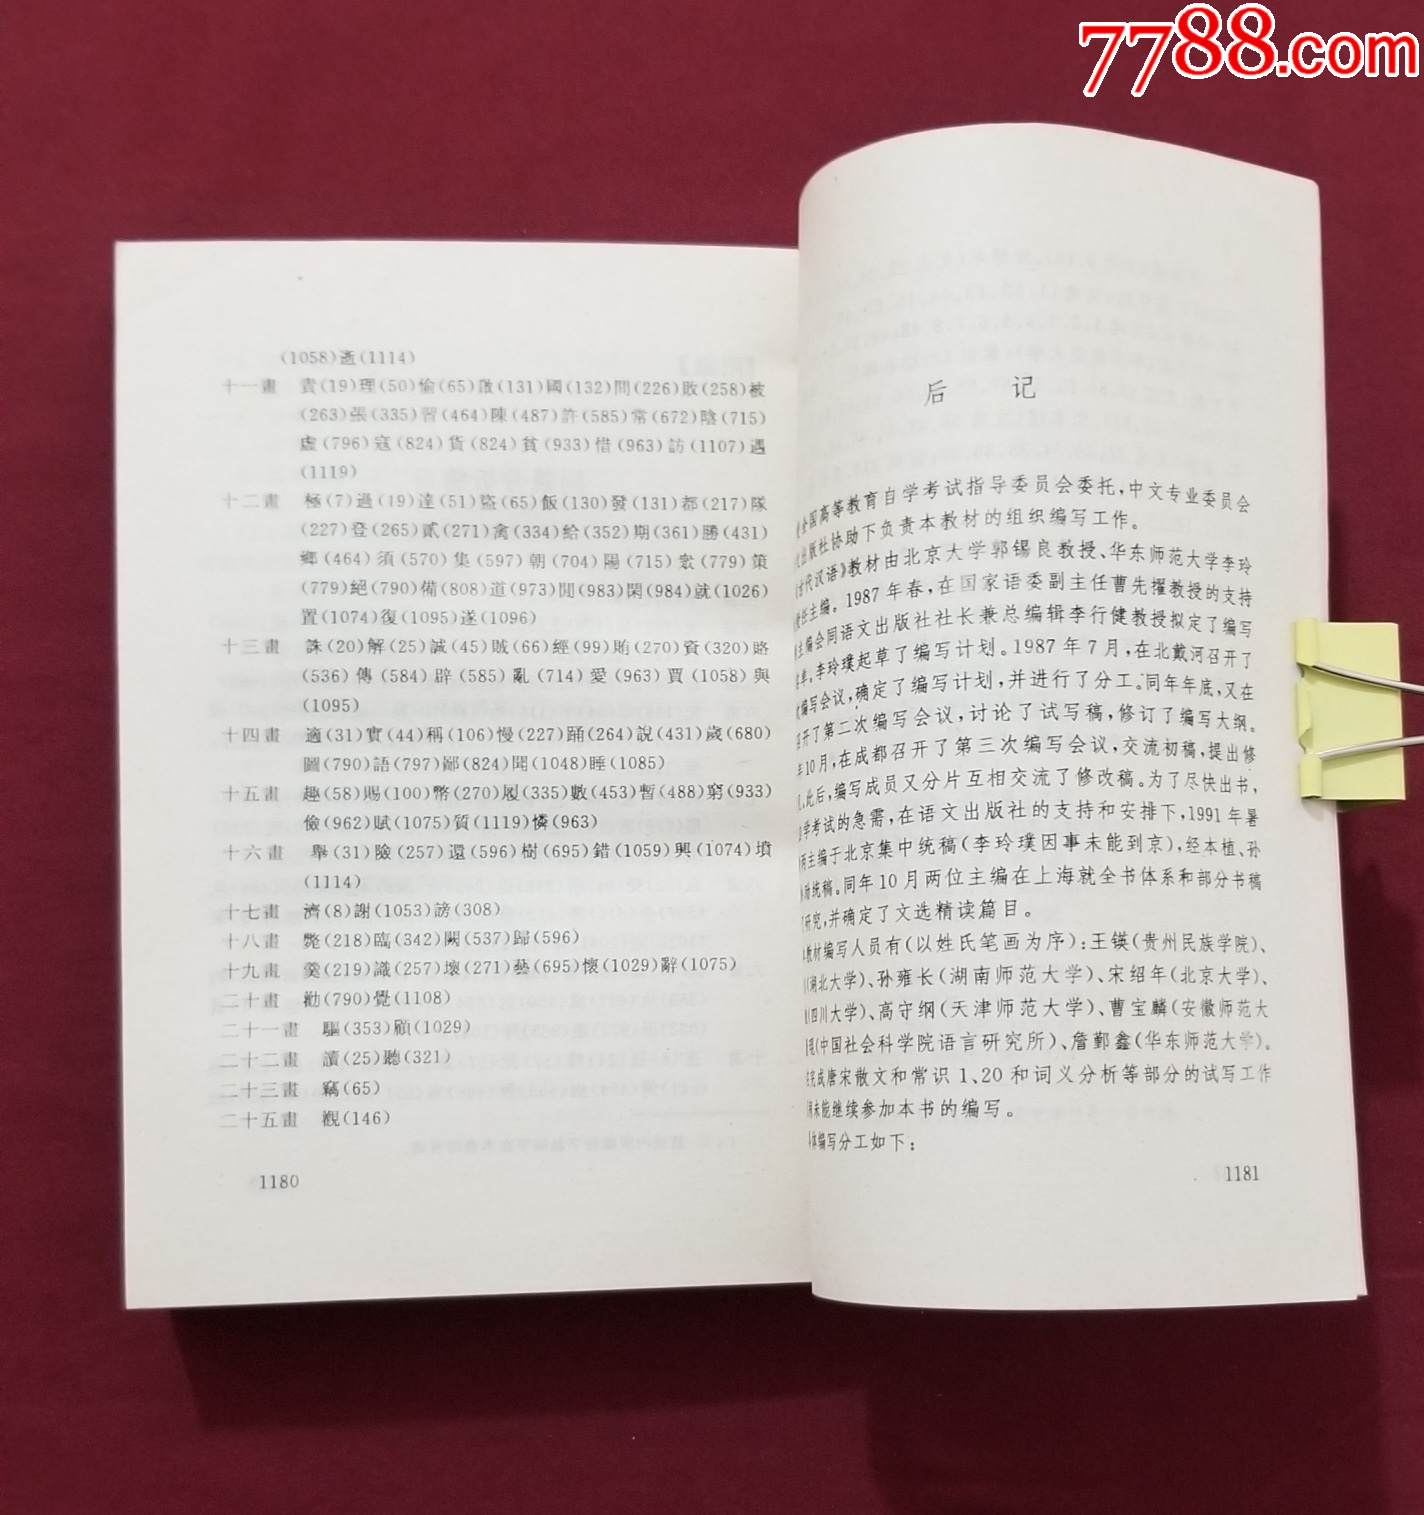 7788.com
(1058)逝(1114)
十一畫 責(19)理(50)偷(65)啟(131)國(132)問(226)敗(258)被
(263)張(335)習(464)陳(487)許(585)常(672)陰(715)
虛(796)寇(824)貨(824)貧(933)惜(963)訪(1107)遇
(1119)
十二畫 極(7)過(19)達(51)盜(65)飯(130)發(131)都(217)隊
(227)登(265)貳(271)禽(334)給(352)期(361)勝(431)
鄉(464)須(570)集(597)朝(704)陽(715)衆(779)策
(779)絕(790)備(808)道(973)閒(983)閑(984)就(1026)
置(1074)復(1095)遂(1096)
十三畫 誅(20)解(25)誠(45)賊(66)經(99)賄(270)資(320)賂
(536)傳(584)辟(585)亂(714)愛(963)賈(1058)與
(1095)
十四畫 適(31)實(44)稱(106)慢(227)踊(264)說(431)歲(680)
圖(790)語(797)鄙(824)聞(1048)睡(1085)
十五畫 趣(58)賜(100)幣(270)履(335)數(453)暫(488)窮(933)
儉(962)賦(1075)質(1119)憐(963)
十六畫 舉(31)險(257)還(596)樹(695)錯(1059)興(1074)墳
(1114)
十七畫 濟(8)謝(1053)謗(308)
十八畫 斃(218)臨(342)闕(537)歸(596)
十九畫 羹(219)識(257)壞(271)藝(695)懷(1029)辭(1075)
二十畫 勸(790)覺(1108)
二十一畫 驅(353)顧(1029)
二十二畫 讀(25)聽(321)
二十三畫 竊(65)
二十五畫 觀(146)
1180
后 记
全国高等教育自学考试指导委员会委托，中文专业委员会
出版社协助下负责本教材的组织编写工作。
古代汉语》教材由北京大学郭锡良教授、华东师范大学李玲
任主编。1987年春，在国家语委副主任曹先擢教授的支持
主编会同语文出版社社长兼总编辑李行健教授拟定了编写
单，李玲璞起草了编写计划。1987年7月，在北戴河召开了
编写会议，确定了编写计划，并进行了分工。同年年底，又在
召开了第二次编写会议，讨论了试写稿，修订了编写大纲。
年10月，在成都召开了第三次编写会议，交流初稿，提出修
此后，编写成员又分片互相交流了修改稿。为了尽快出书，
学考试的急需，在语文出版社的支持和安排下，1991年暑
两主编于北京集中统稿(李玲璞因事未能到京)，经本植、孙
协助统稿。同年10月两位主编在上海就全书体系和部分书稿
了研究，并确定了文选精读篇目。
教材编写人员有(以姓氏笔画为序)：王锳(贵州民族学院)、
(湖北大学)、孙雍长(湖南师范大学)、宋绍年(北京大学)、
(四川大学)、高守纲(天津师范大学)、曹宝麟(安徽师范大
(中国社会科学院语言研究所)、詹鄞鑫(华东师范大学)。
完成唐宋散文和常识1、20和词义分析等部分的试写工作
未能继续参加本书的编写。
体编写分工如下：
1181